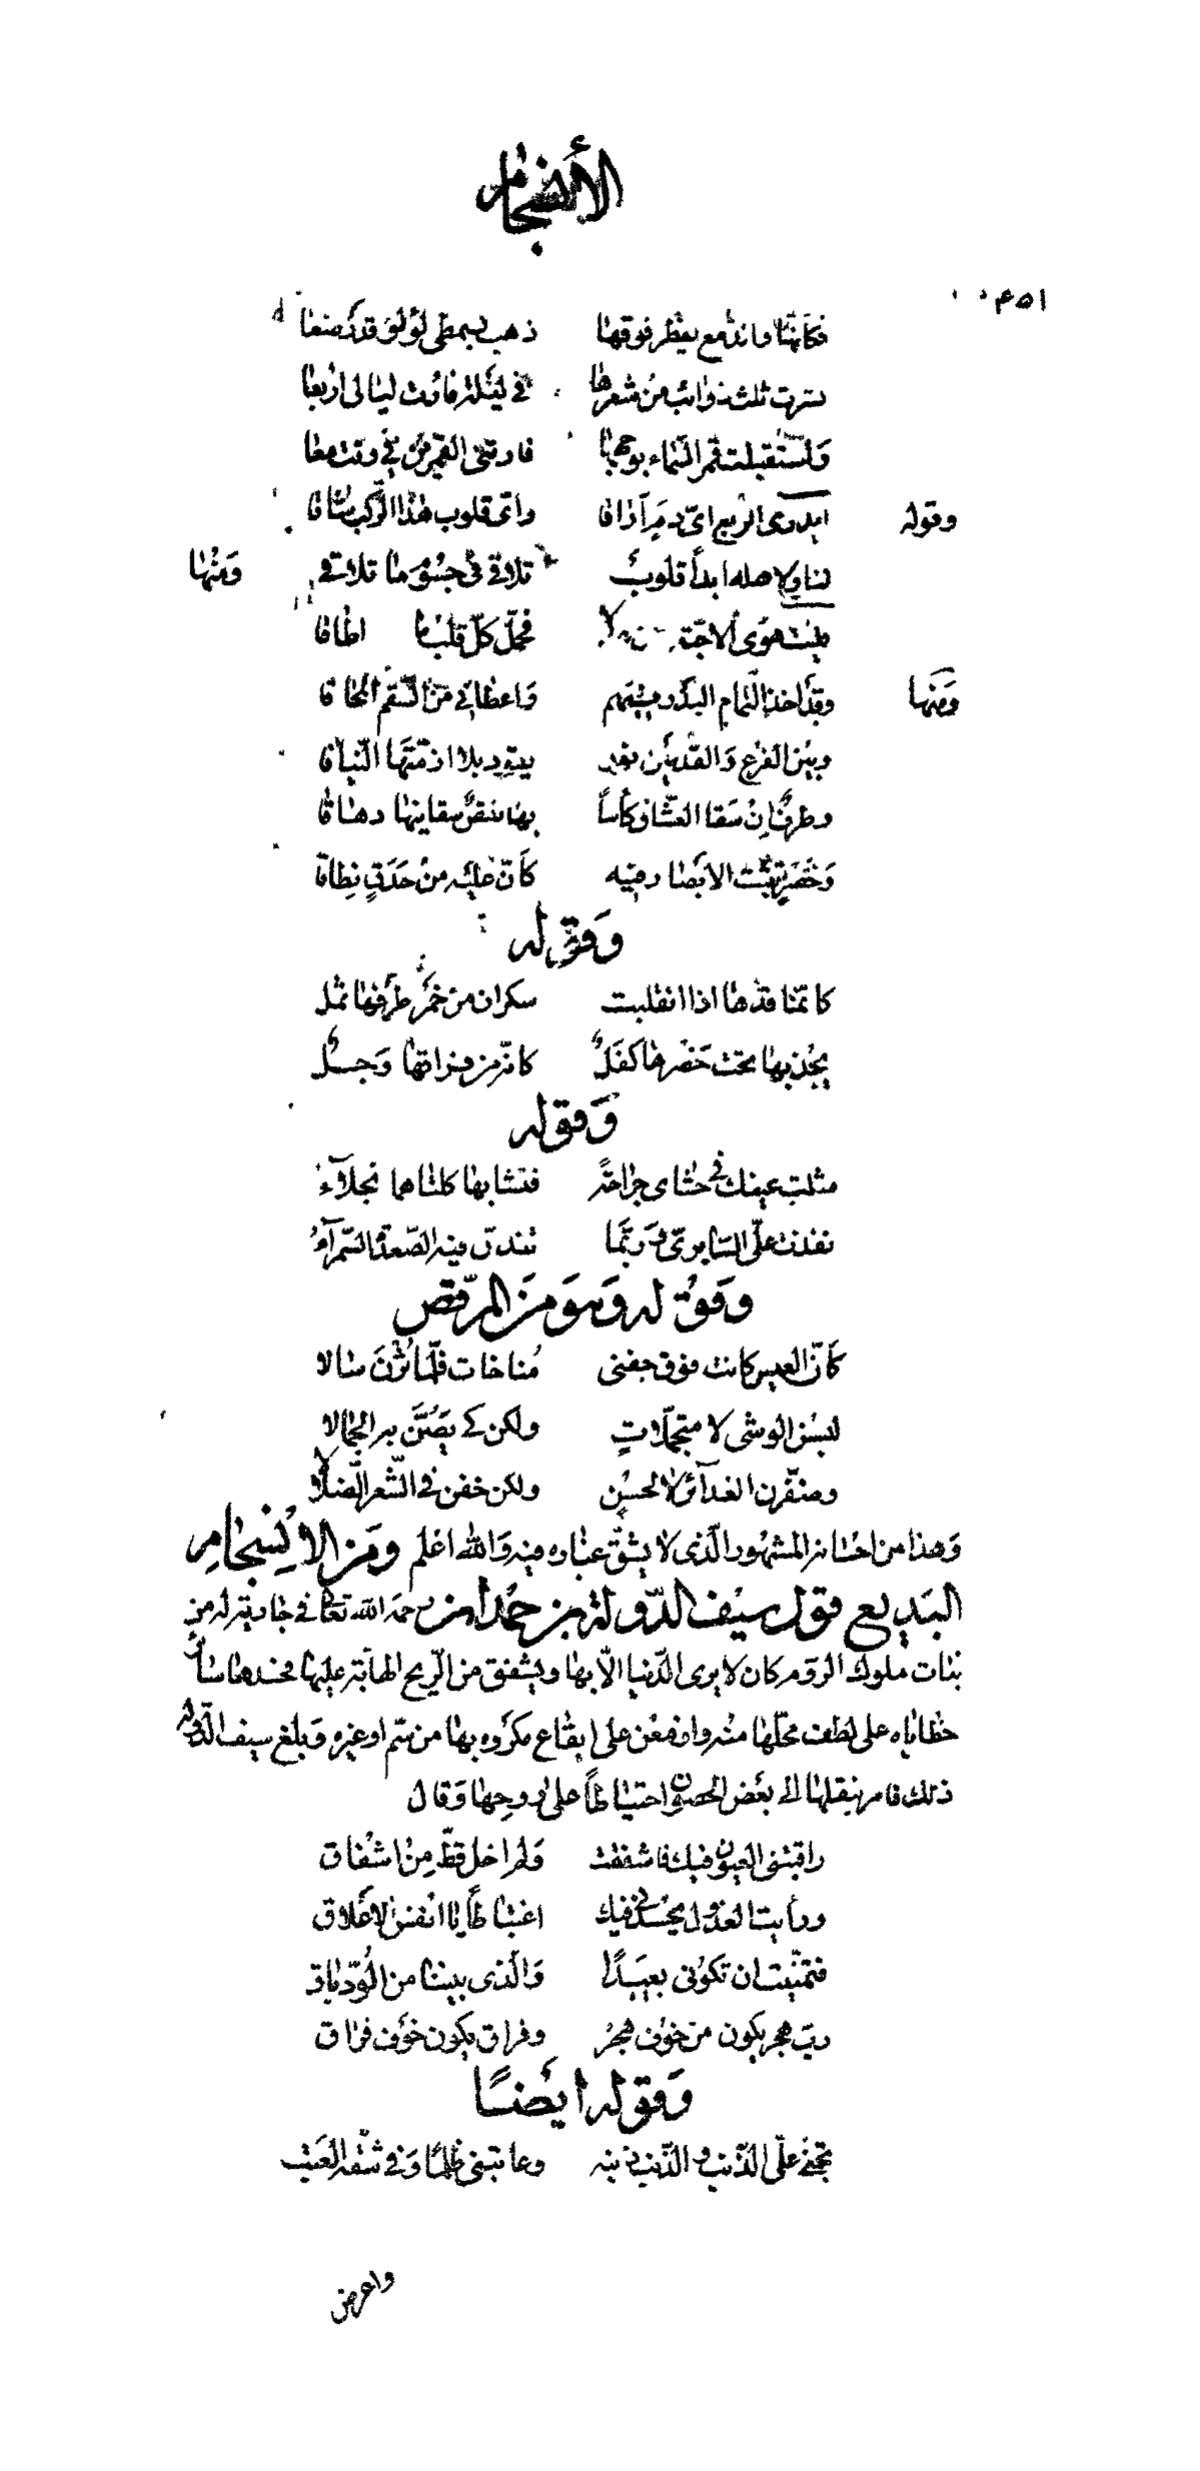 الأنسجام
٤٥١
فكأنها والدمع يقطر فوقها ذهب بسمطى لؤلؤ قد رصعا
نشرت ثلث ذوائب من شعرها في ليلة فارت ليالى اربعا
واستقبلت قمر السماء بوجهها فارتنى القمرين في وقت معا
وقوله ايدرى الربع اىّ دم اراقا واىّ قلوب هذا الركب شاقا
لنا ولاهله ابدأ قلوب تلاقى فى جسوم ما تلاقى ومنها
فليت هوى الاحبة فحمّل كلّ قلب ما اطاقا
ومنها وقد اخذ التمام البدر فيهم واعطانى من السقم المحاقا
وبين الفرع والقدمين نور يقود بلا ازمّتها النياقا
وطرف ان سقا العشاق كأساً بها نقص سقانيها دهاقا
وخصر تثبت الابصار فيه كأنّ عليه من حدق نطاقا
وقوله
كانّما قدها اذا انفلتت سكران من خمر طرفها ثمل
يجذبها تحت خصرها كفل كانّه من فراقها وجل
وقوله
مثلت عينك فى حشاى جراحة فتشابها كلتاهما نجلآء
نفذت علىّ السابرىّ وربّما تندق فيه الصعدة السمرآء
وقوله وهو من المرقص
كأنّ العيس كانت فوق جفنى مناخات فلما ثرن سالا
لبسن الوشى لا متجمّلات ولكن كے يصنّ به الجمالا
وضفّرن الغدآئر لا لحسن ولكن خفن فى الشعر الضلالا
وهذا من احسانه المشهور الّذى لا يشقّ غباره فيه والله اعلم ومن الانسجام
البديع قول سيف الدّولة بن حمدان رحمه الله تعالى فى جارية له من
بنات ملوك الروم كان لا يرى الدّنيا الّا بها ويشفق من الرّيح الهابّة عليها فحسدها سائر
حظاياه على لطف محلّها منه وازمعن على ايقاع مكروه بها من سم او غيره وبلغ سيف الدّولة
ذلك فامر بنقلها الى بعض الحصون احتياطاً على روحها وقال
راقبتنى العيون فيك فاشفقت ولم اخل قطّ من اشفاق
ورأيت العذول يحسدنى فيك اغتباطاً يا انفس الاعلاق
فتمنّيت ان تكونى بعيدًا والّذى بيننا من الودّ باق
ربّ هجر يكون من خوف هجر وفراق يكون خوف فراق
وقوله ايضًا
تجنّى علىّ الذّنب والذّنب ذنبه وعاتبنى ظلمًا وفى شقّه العتب
واعرض